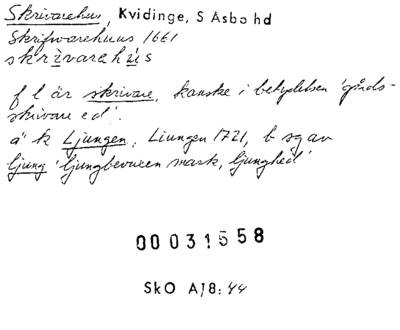 Skrivarehus, Kvidinge, S Åsbo hd
Skrifwarehuus 1661
skrivarehús
f l är skrivare, kanske i betydelsen 'gårds-
skrivare d'.
a" k Ljungen, Liungen 1721, b sg av
ljung 'ljungbevuxen mark, ljunghed'
00 031558
SkO A18:44